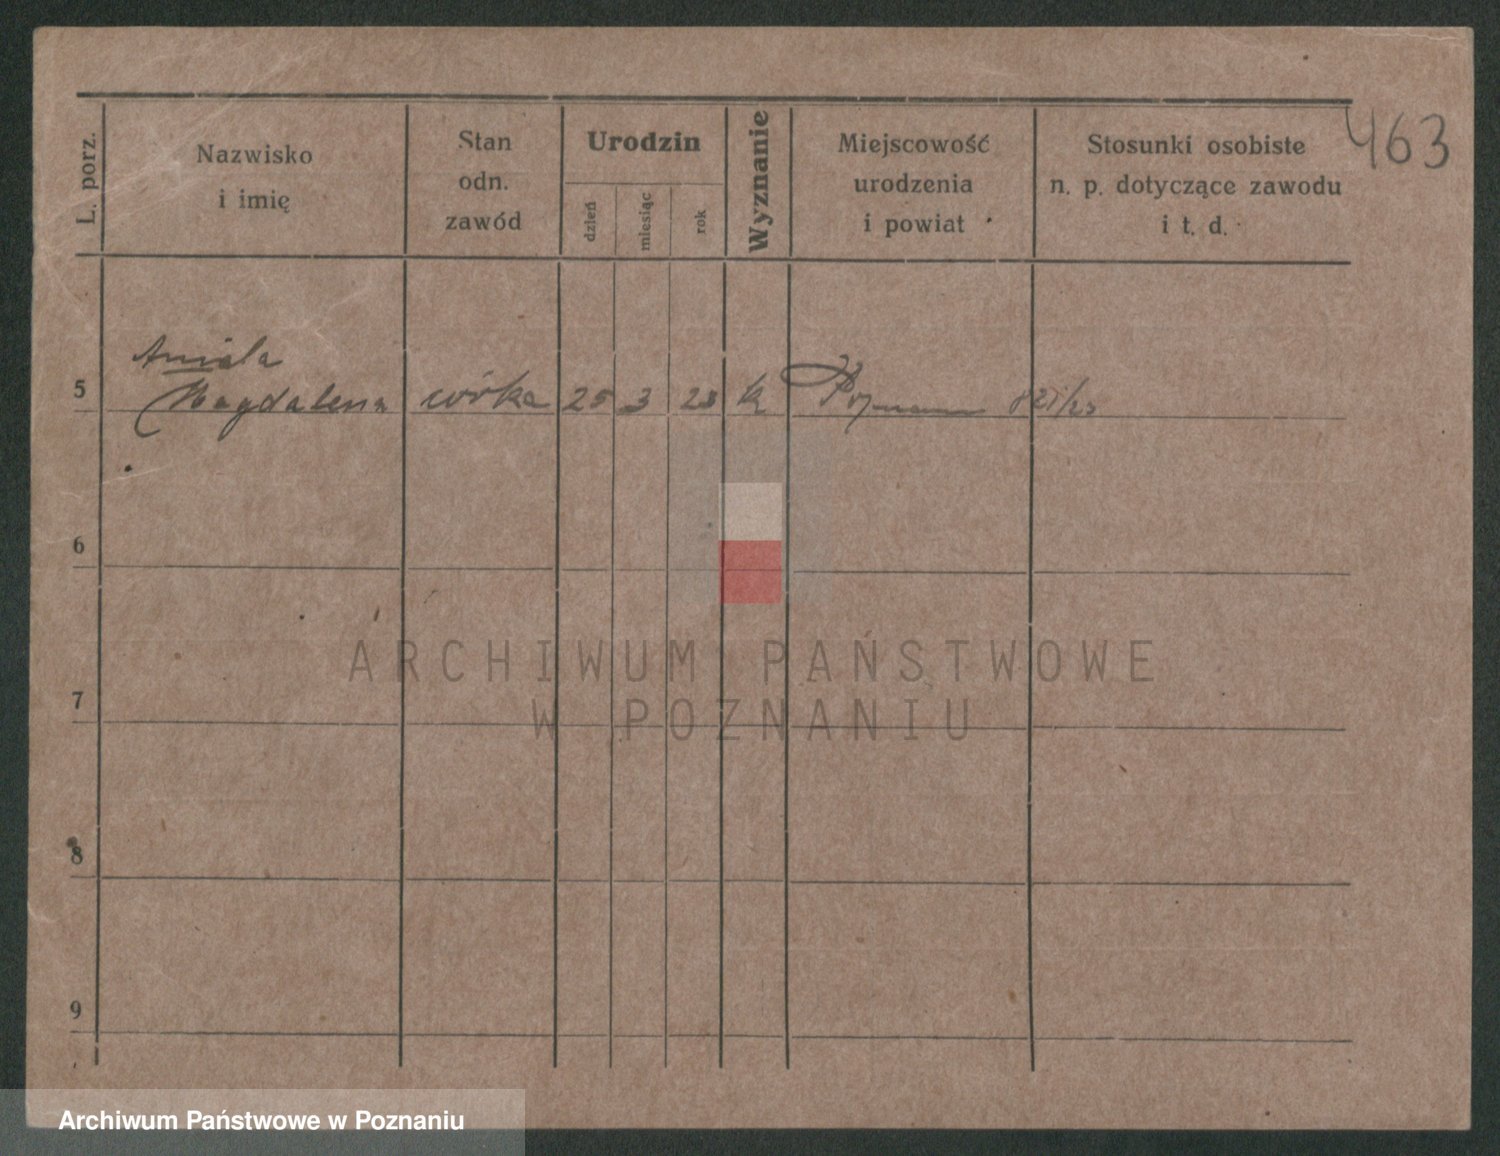 463
L. porz.
Nazwisko
i imię
Stan
odn.
zawód
Urodzin
dzień
miesiąc
rok
Wyznanie
Miejscowość
urodzenia
i powiat
Stosunki osobiste
n. p. dotyczące zawodu
i t. d.
Aniela
5 Magdalena córka 25 3 23 k Poznań
6
7
8
9
ARCHIWUM PAŃSTWOWE
W POZNANIU
Archiwum Państwowe w Poznaniu